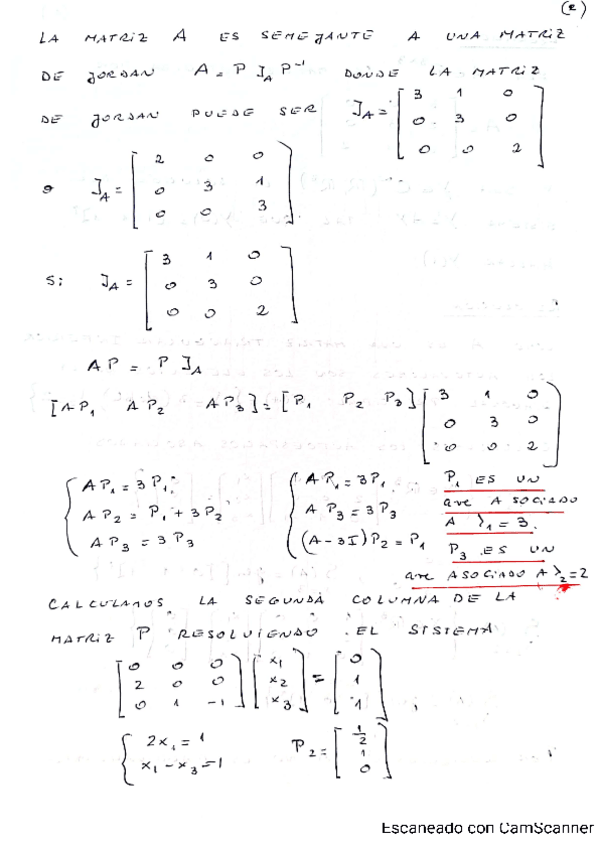 (2)
LA MATRIZ A ES SEMEJANTE A UNA MATRIZ
DE JORDAN A = P J_A P^-1 DONDE LA MATRIZ
DE JORDAN PUEDE SER J_A = [3 1 0
0 3 0
0 0 2]
O J_A = [2 0 0
0 3 1
0 0 3]
Si J_A = [3 1 0
0 3 0
0 0 2]
A P = P J_A
[AP_1 AP_2 AP_3] = [P_1 P_2 P_3] [3 1 0
0 3 0
0 0 2]
{ AP_1 = 3P_1
AP_2 = P_1 + 3P_2
AP_3 = 3P_3
{ AP_1 = 3P_1
A P_3 = 3P_3
(A-3I)P_2 = P_1
P_1 ES UN
ave ASOCIADO
A λ_1 = 3.
P_3 ES UN
ave ASOCIADO A λ_2 = 2
CALCULAMOS LA SEGUNDA COLUMNA DE LA
MATRIZ P RESOLVIENDO EL SISTEMA
[0 0 0
2 0 0
0 1 -1] [x_1
x_2
x_3] = [0
1
1]
{ 2x_1 = 1
x_1 - x_3 = 1
P_2 = [1/2
1
0]
Escaneado con CamScanner